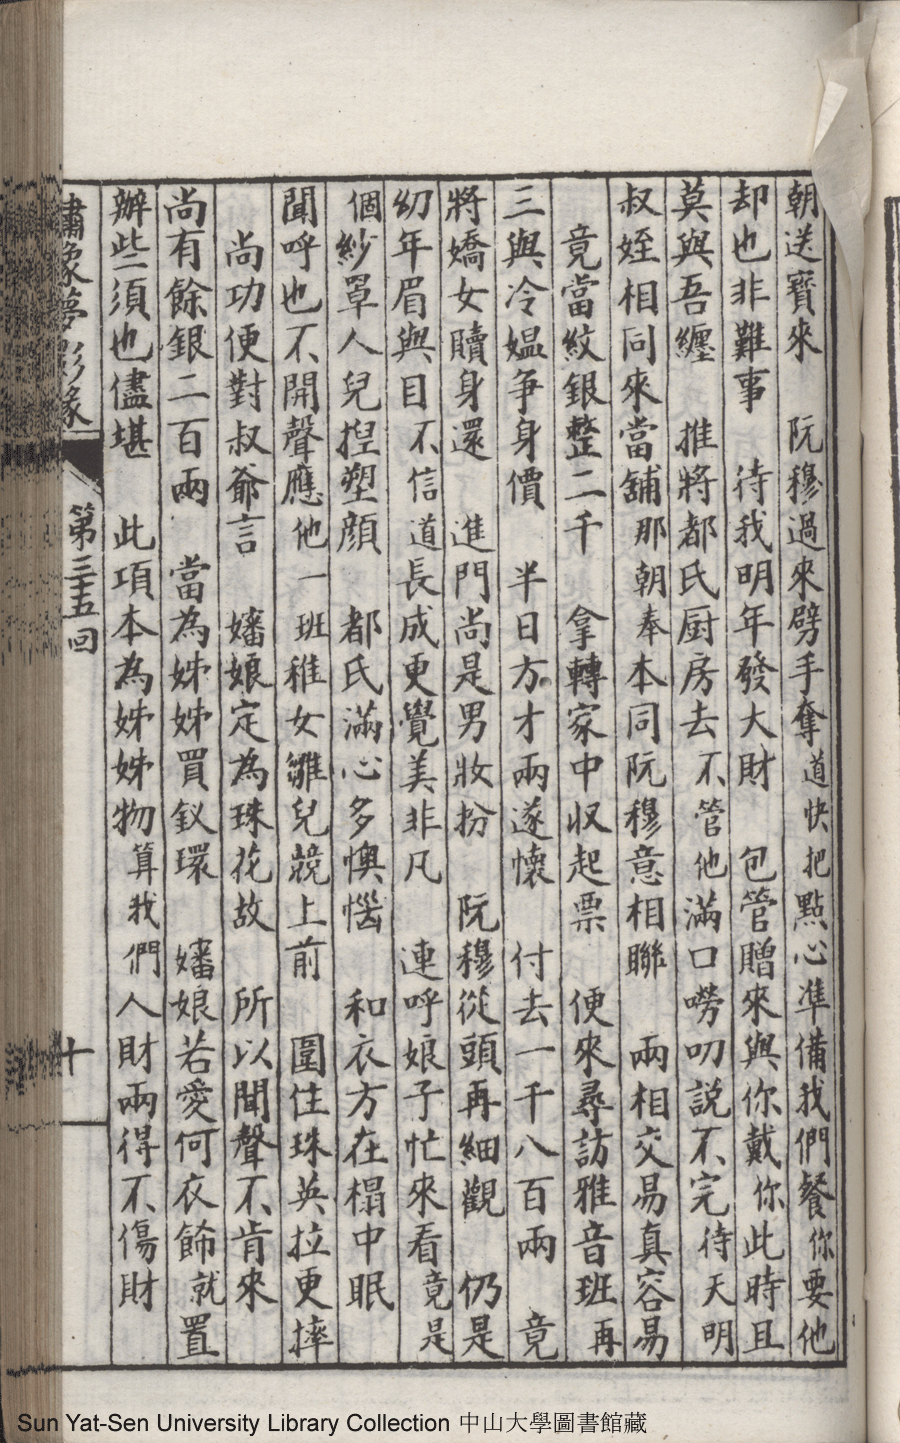 朝送寶來　阮穆過來劈手奪道快把點心準備我們餐你要他
却也非難事　待我明年發大財　包管贈來與你戴你此時且
莫與吾纏　推將都氏厨房去不管他滿口嘮叨説不完待天明
叔姪相同來當舖那朝奉本同阮穆意相聯　兩相交易真容易
竟當紋銀整二千　拿轉家中収起票　便來尋訪雅音班再
三與冷媪争身價　半日方才兩遂懷　付去一千八百兩　竟
將嬌女贖身還　進門尚是男妝扮　阮穆從頭再細觀　仍是
幼年眉與目不信道長成更覺美非凡　連呼娘子忙來看竟是
個紗罩人兒揑塑顔　都氏滿心多懊惱　和衣方在榻中眠
聞呼也不開聲應他一班稚女雛兒競上前　圍住珠英拉更摔
尚功便對叔爺言　嬸娘定為珠花故　所以聞聲不肯來
尚有餘銀二百兩　當為姊姊買釵環　嬸娘若愛何衣飾就置
辦些須也儘堪　此項本為姊姊物算我們人財兩得不傷財
繡像夢影緣
第三十五回
十
Sun Yat-Sen University Library Collection 中山大學圖書館藏